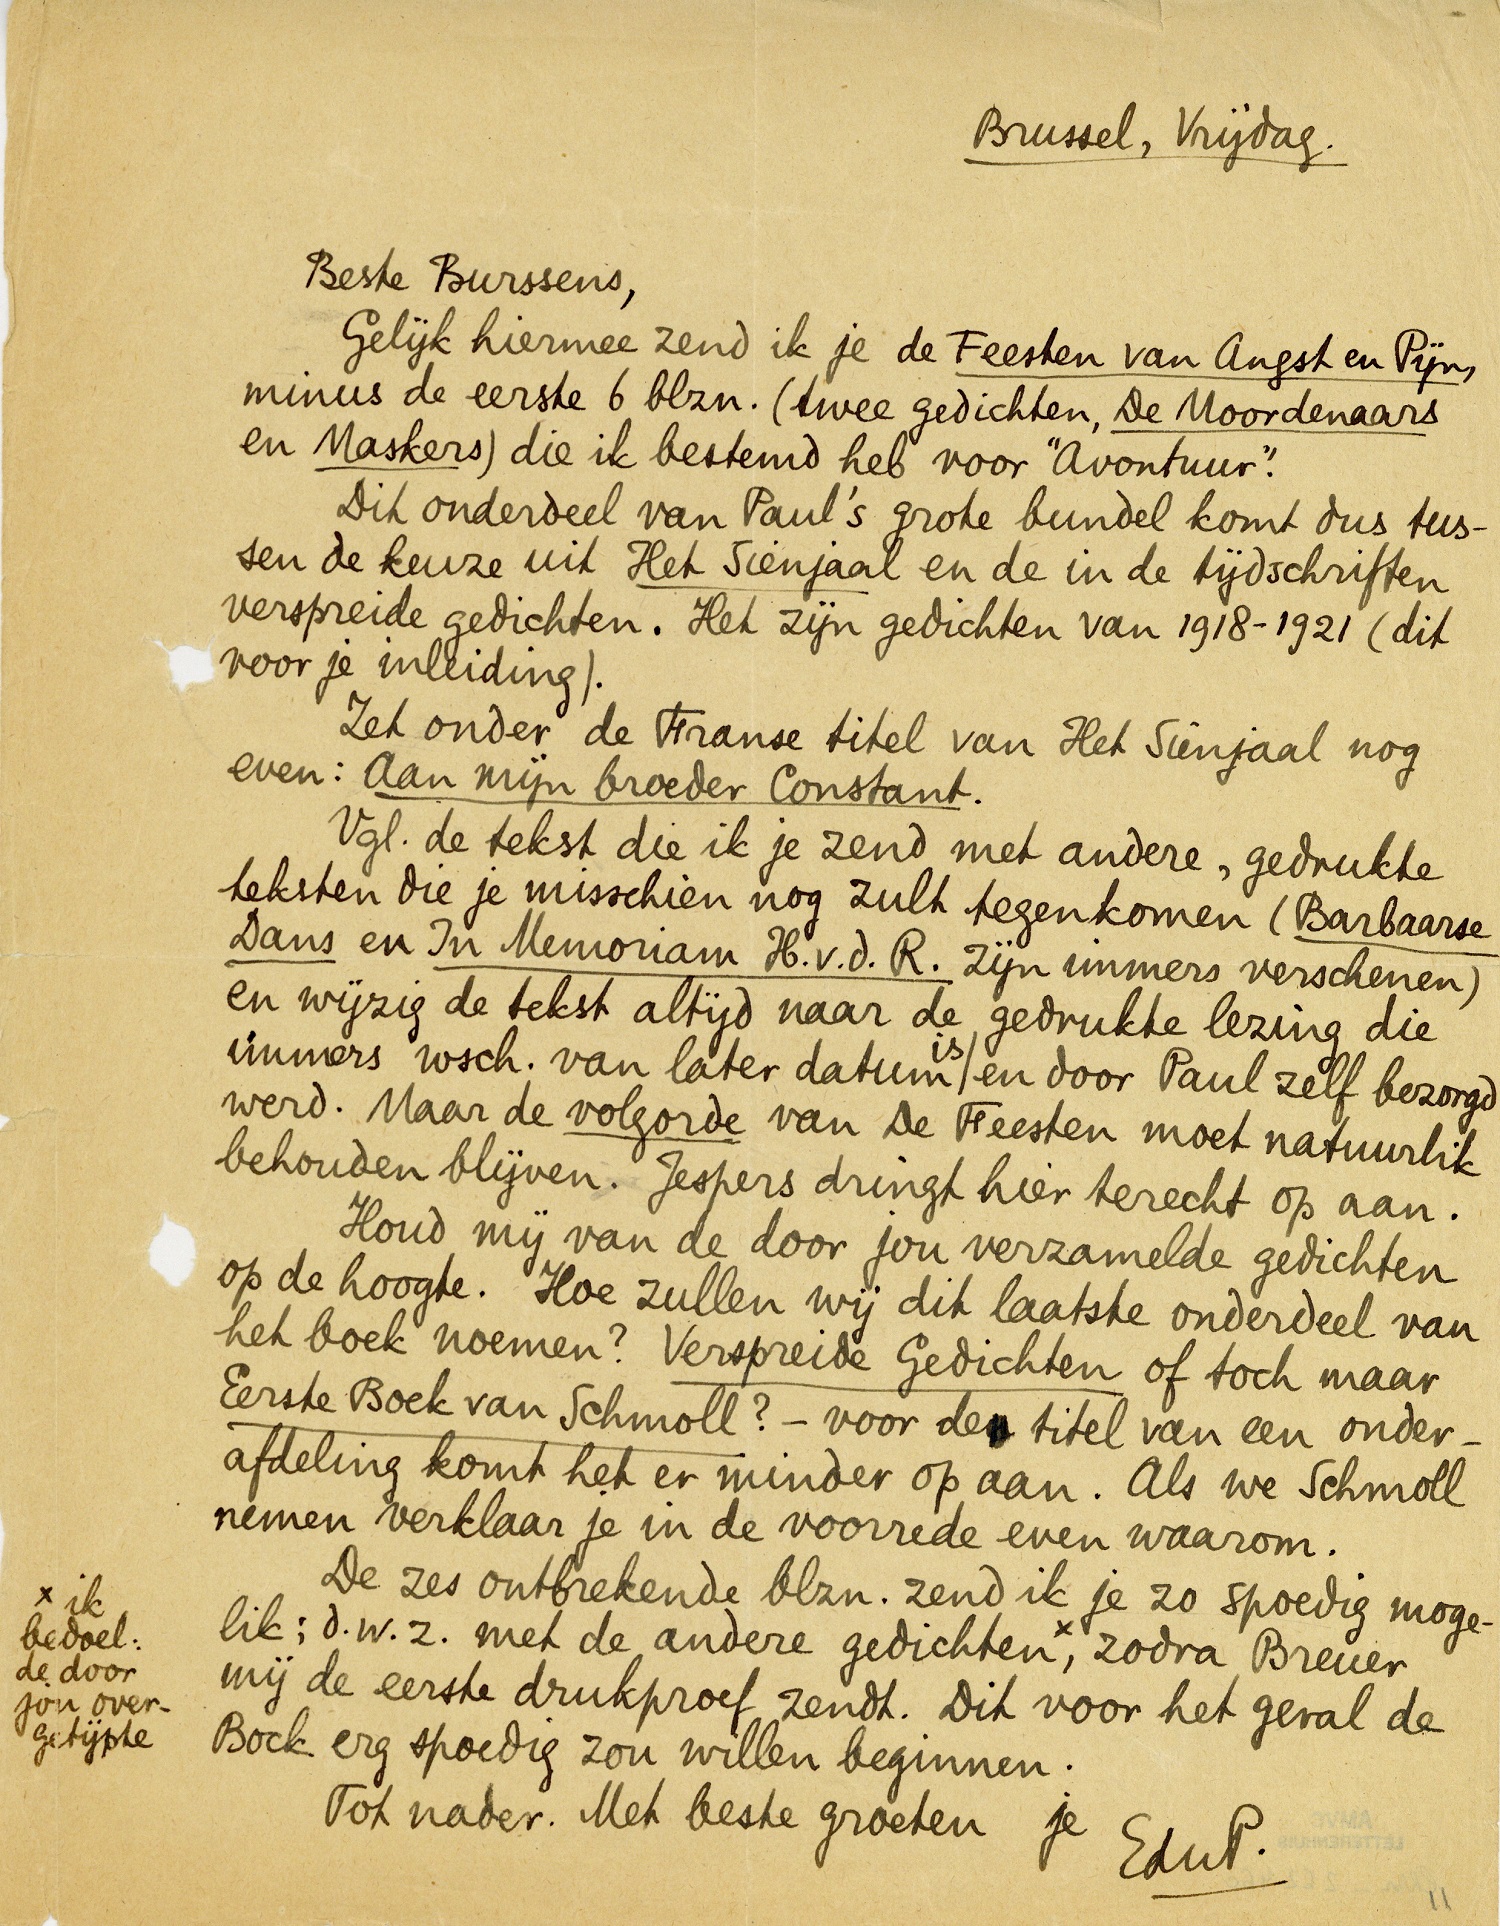 Brussel, Vrijdag.
Beste Burssens,
Gelijk hiermee zend ik je de Feesten van Angst en Pijn,
minus de eerste 6 blzn. (twee gedichten, De Moordenaars
en Maskers) die ik bestemd heb voor "Avontuur".
Dit onderdeel van Paul's grote bundel komt dus tus-
sen de keuze uit Het Sienjaal en de in de tijdschriften
verspreide gedichten. Het zijn gedichten van 1918-1921 (dit
voor je inleiding).
Zet onder de Franse titel van Het Sienjaal nog
even: Aan mijn broeder Constant.
Vgl. de tekst die ik je zend met andere, gedrukte
teksten die je misschien nog zult tegenkomen (Barbaarse
Dans en In Memoriam H.v.d. R. zijn immers verschenen)
en wijzig de tekst altijd naar de gedrukte lezing die
immers wsch. van later datum is/ en door Paul zelf bezorgd
werd. Maar de volgorde van De Feesten moet natuurlik
behouden blijven. Jespers dringt hier terecht op aan.
Houd mij van de door jou verzamelde gedichten
op de hoogte. Hoe zullen wij dit laatste onderdeel van
het boek noemen? Verspreide Gedichten of toch maar
Eerste Boek van Schmoll? – voor den titel van een onder-
afdeling komt het er minder op aan. Als we Schmoll
nemen verklaar je in de voorrede even waarom.
De zes ontbrekende blzn. zend ik je zo spoedig moge-
lik; d.w.z. met de andere gedichten x, zodra Breuer
mij de eerste drukproef zendt. Dit voor het geval de
Bock erg spoedig zou willen beginnen.
Tot nader. Met beste groeten je
EduP.
x ik
bedoel:
de door
jou over-
getijpte
AMVC
LETTERENHUIS
11